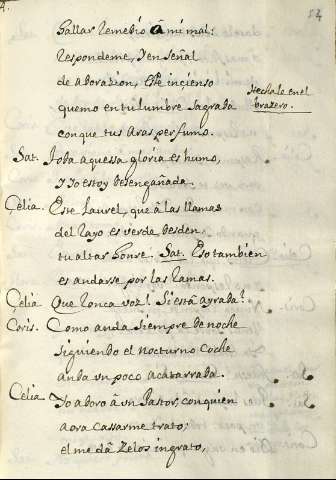 4.
54
Hallar remedio â mi mal:
Respondeme, y en señal
de adorasion, este inçienso
Hechale en el
brazero.
quemo en tu lumbre sagrada
con que tus aras perfumo.
Sat. Toda aquessa gloria es humo,
y yo estoy desengañada.
Çelia. Este Laurel, que â las llamas
del Rayo es verde desden,
tu altar honre. Sat. Eso tambien
es andarse por las Ramas.
Çelia Que ronca voz! Si està ayrada?
Coris. Como anda siempre de noche
siguiendo el nocturno coche
anda un poco acatarrada.
Çelia. Yo adoro â un Pastor, con quien
aora cassarme trato;
el me dâ zelos ingrato,